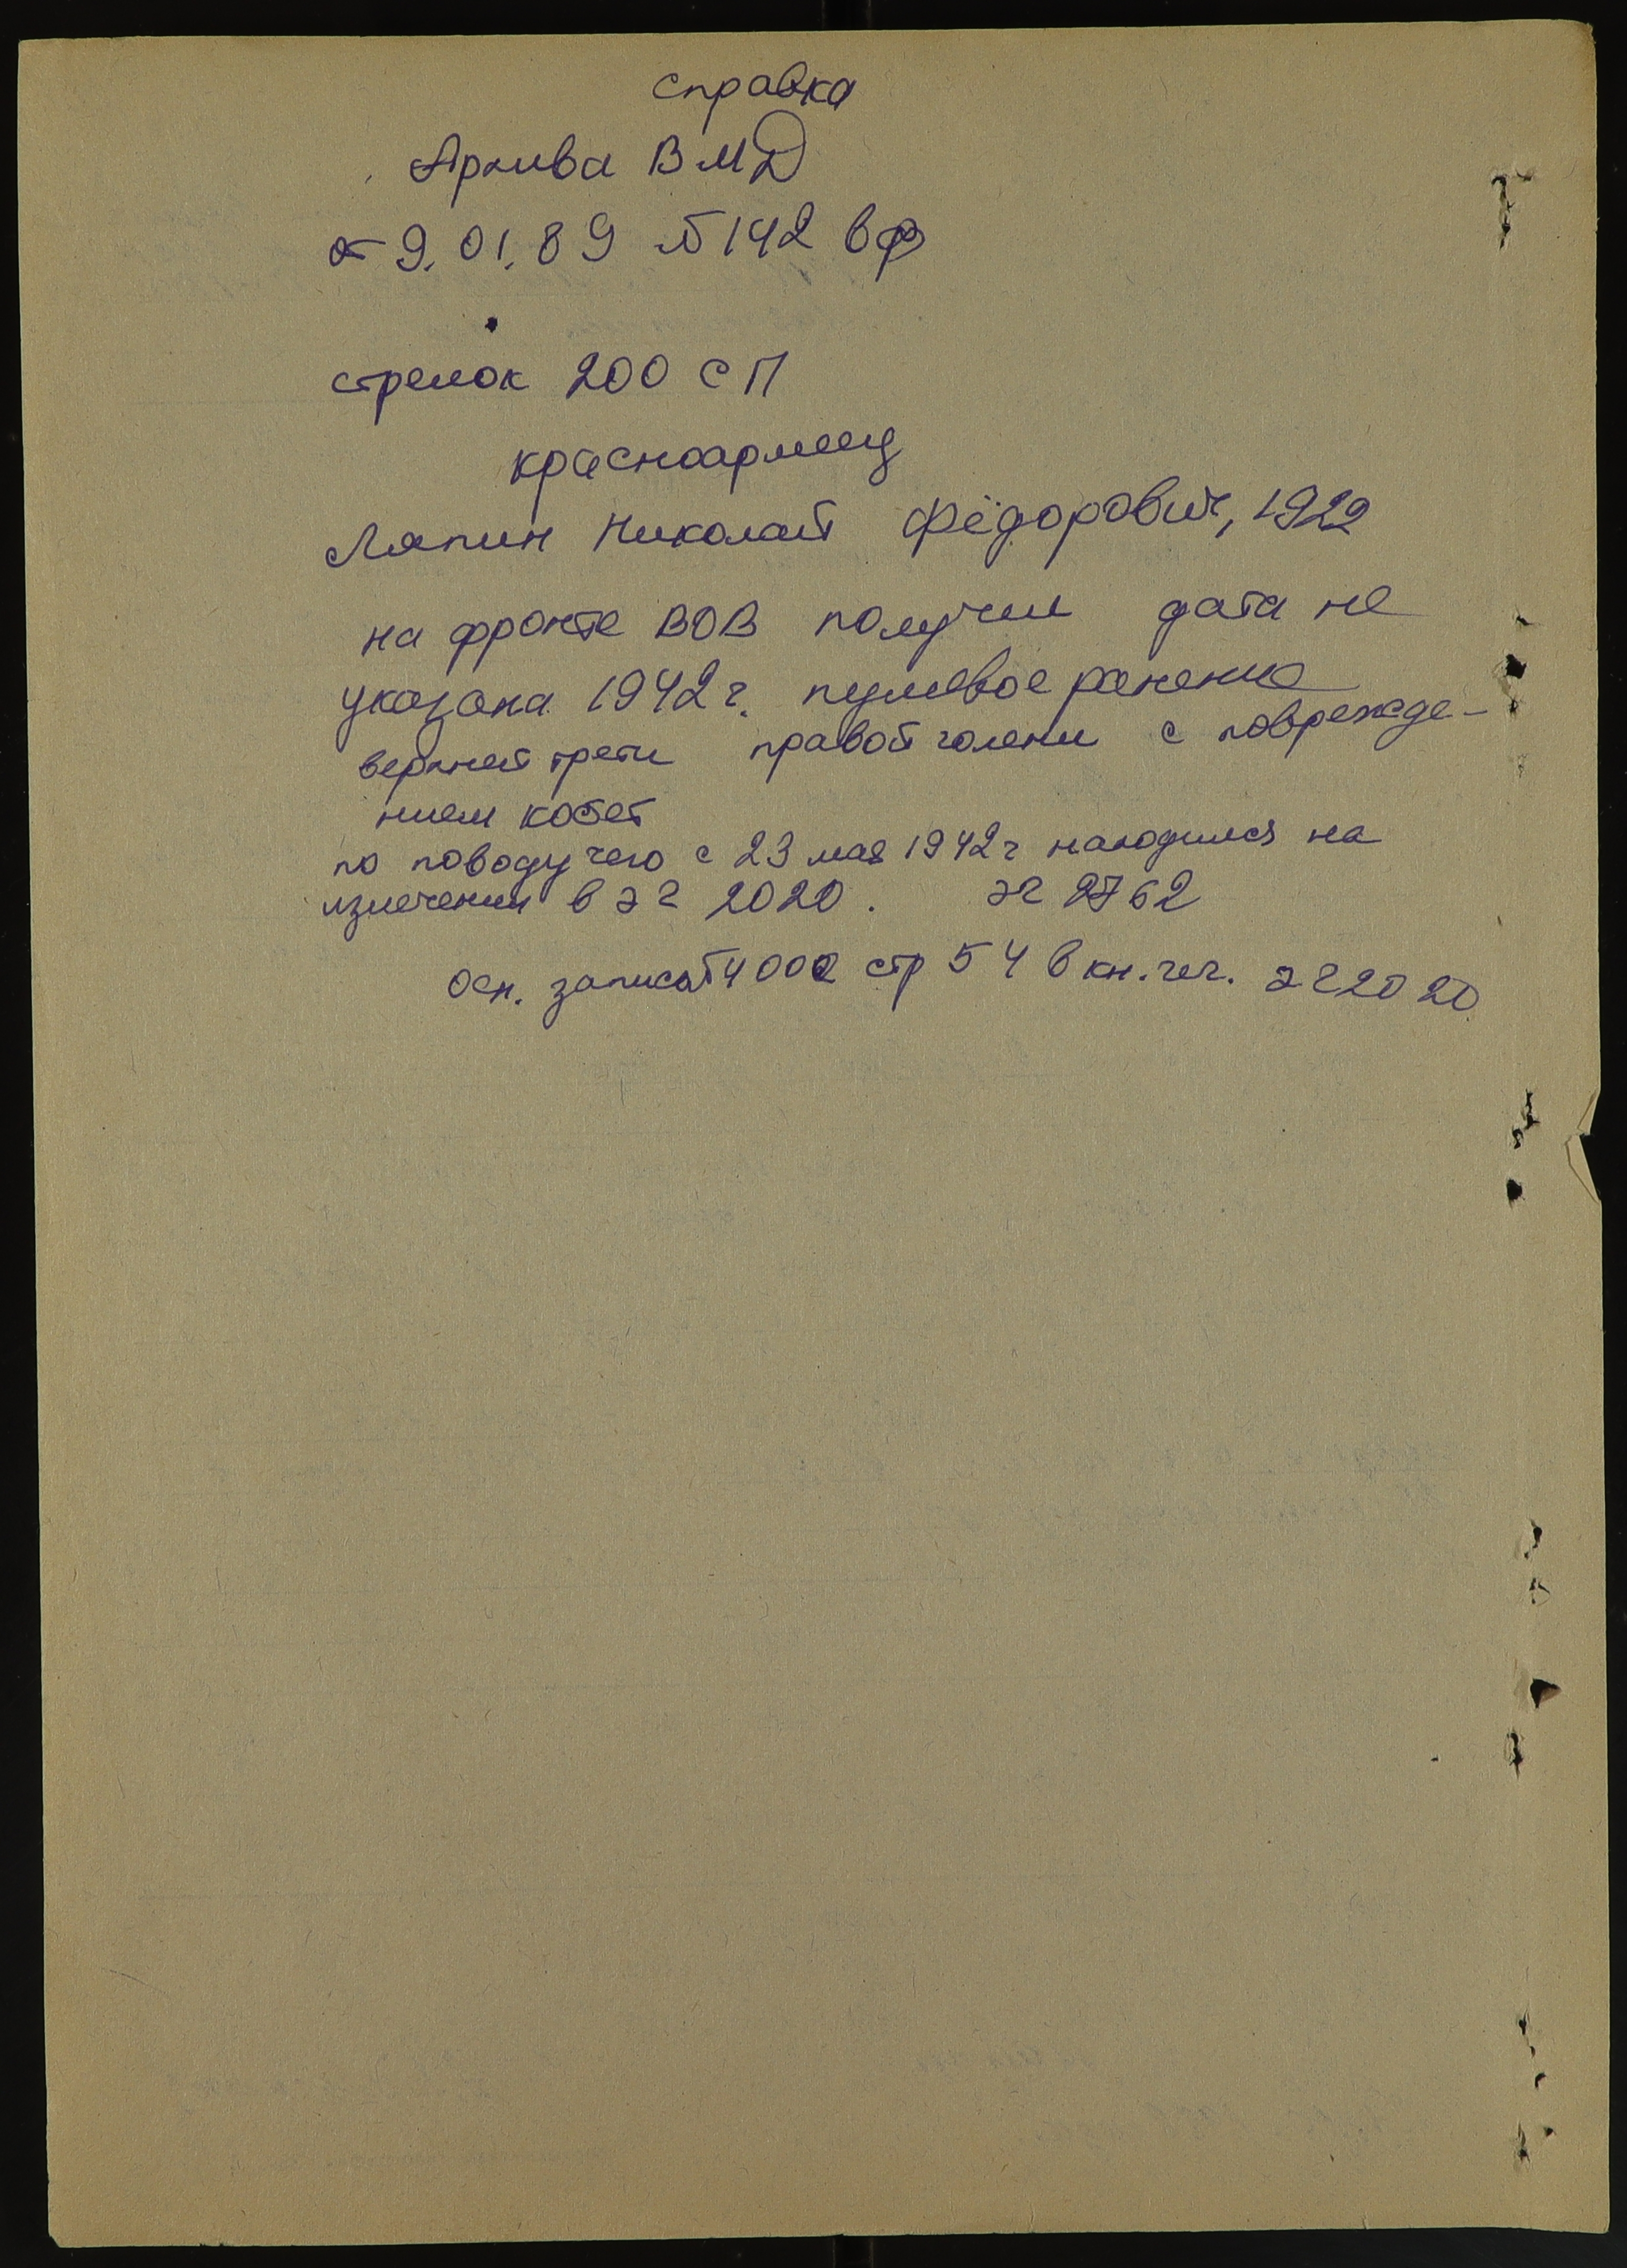 справка
Архива ВМД
от 9.01.89 № 142 вф
стрелок 200 сП
красноармеец
Ляпин Николай Фёдорович, 1922
на фронте ВОВ получил дата не
указана 1942 г. пулевое ранение
верхней трети правой голени с поврежде-
нием костей
по поводу чего с 23 мая 1942 г находился на
излечении в эг 2020. эг 2762
Осн. запись 4002 стр 54 в кн. лег. эг 2020